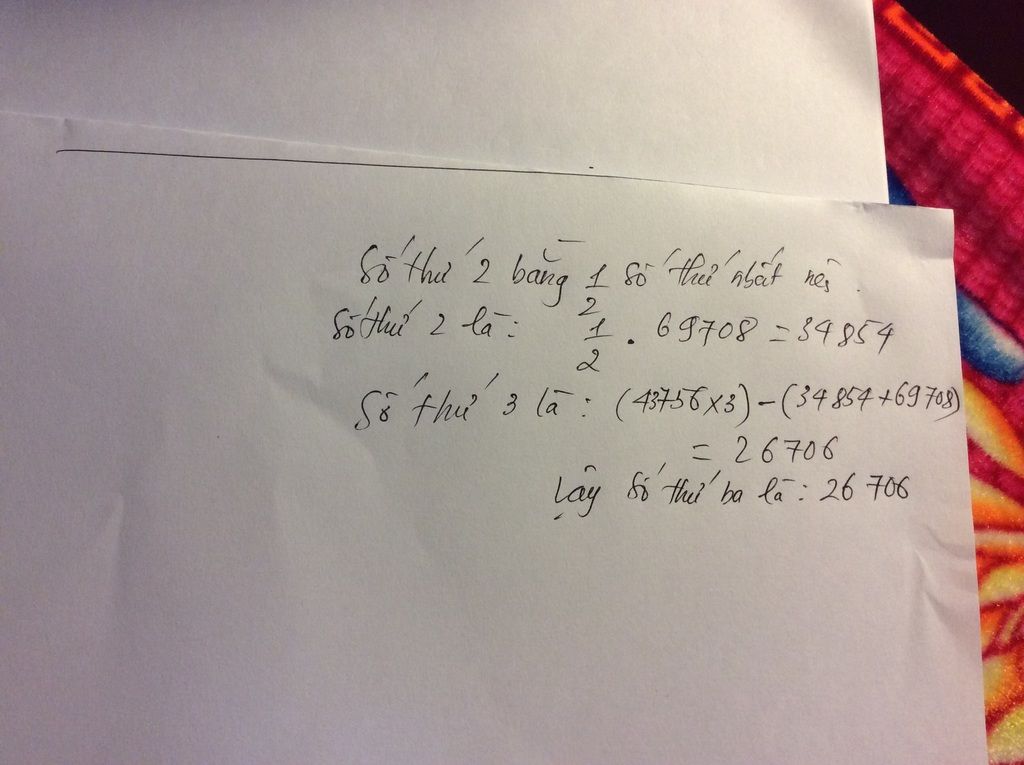 Số thứ 2 bằng 1/2 số thứ nhất nên
Số thứ 2 là: 1/2 . 69708 = 34854
Số thứ 3 là: (43756 x 3) - (34854 + 69708)
= 26706
Vậy số thứ ba là: 26 706